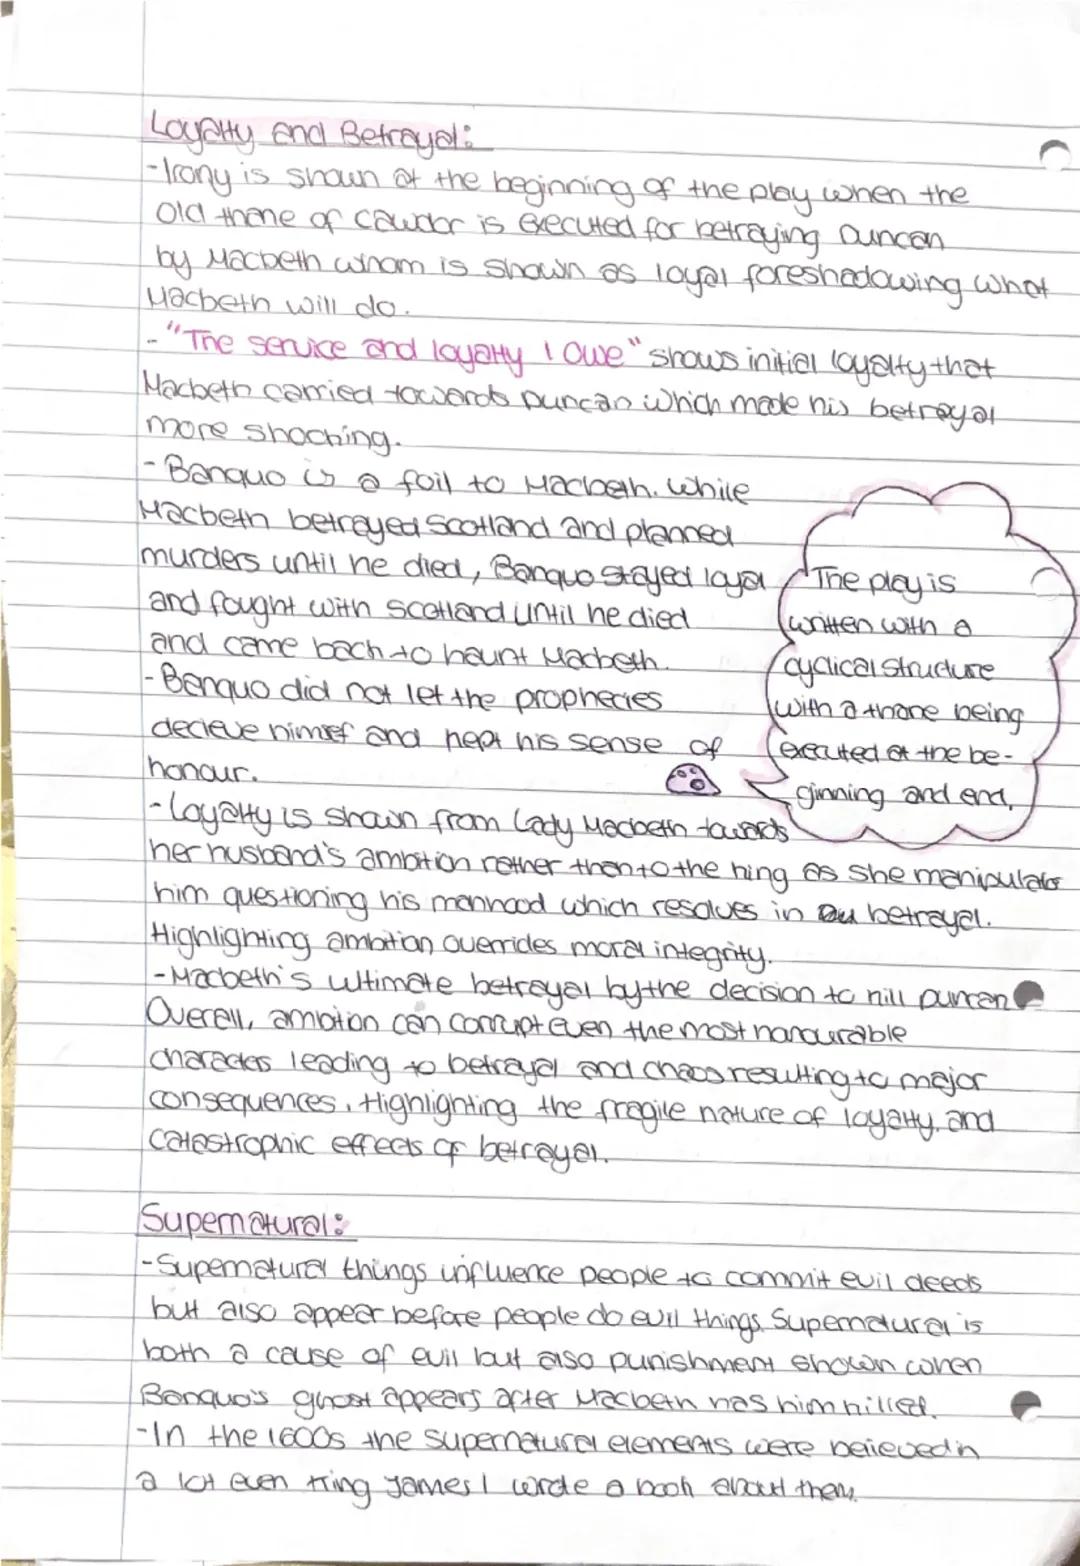 Loyalty and Betrayal:
-Irony is shown at the beginning of the play when the
old thane of cawdor is executed for betraying Duncan
by Macbeth whom is shown as loyal foreshadowing what
Macbeth will do.
- "The service and loyalty I owe" shows initial loyalty that
Macbeth carried towards Duncan which made his betrayal
more shocking.
- Banquo is a foil to Macbeth. While
Macbeth betrayed Scotland and planned
murders until he died, Banquo stayed loyal
and fought with scotland until he died
and came back to haunt Macbeth.
- Banquo did not let the prophecies
decieve himsef and kept his sense of
honour.
The play is
written with a
cyclical structure
with a thane being
executed at the be-
ginning and end.
- Loyalty is shown from Lady Macbeth towards
her husband's ambition rather than to the king as she manipulates
him questioning his manhood which resolves in betrayal.
Highlighting ambition overrides moral integrity.
- Macbeth's ultimate betrayal by the decision to kill Duncan
Overall, ambition can corrupt even the most honourable
characters leading to betrayal and chaos resulting to major
consequences. Highlighting the fragile nature of loyalty, and
catastrophic effects of betrayal.
Supernatural:
- Supernatural things influence people to commit evil deeds
but also appear before people do evil things. Supernatural is
both a cause of evil but also punishment shown when
Banquo's ghost appears after Macbeth has him killed.
- In the 1600s the supernatural elements were believed in
a lot even King James I wrote a book about them.